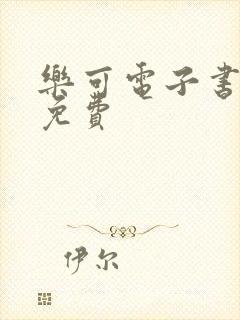 樂可電子書
免費
伊尔